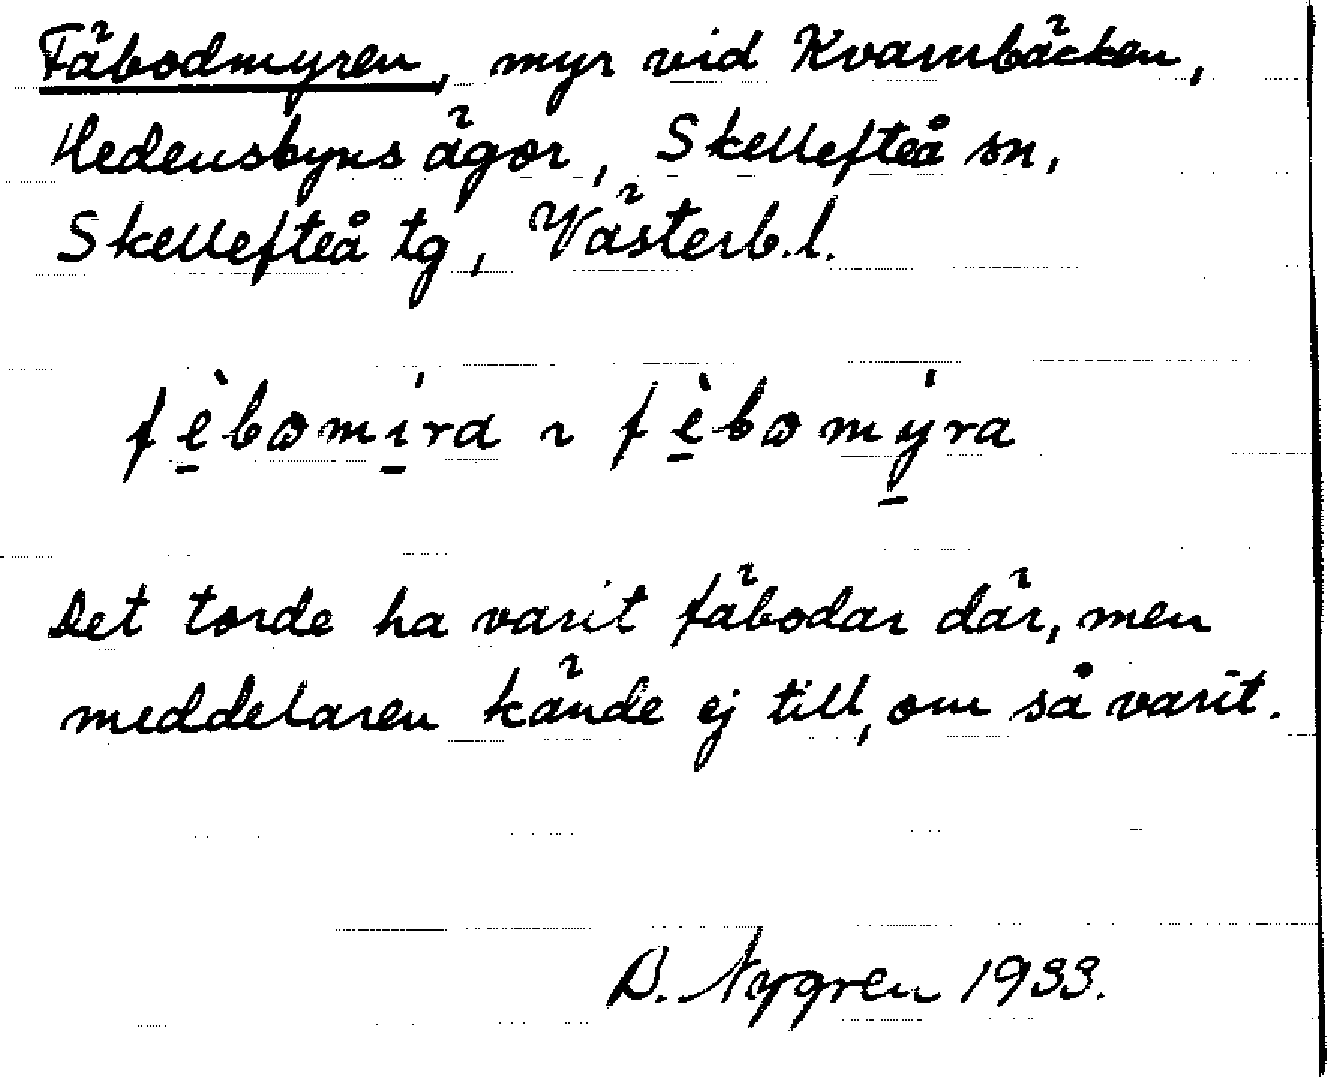 Fäbodmyren, myr vid Kvarnbäcken,
Hedensbyns ägor, Skellefteå sn,
Skellefteå tg, Västerb.l.
fè̱bωmí̱ra ~ fè̱bωmý̱ra
Det torde ha varit fäbodar där, men
meddelaren kände ej till, om så varit.
B. Nygren 1933.